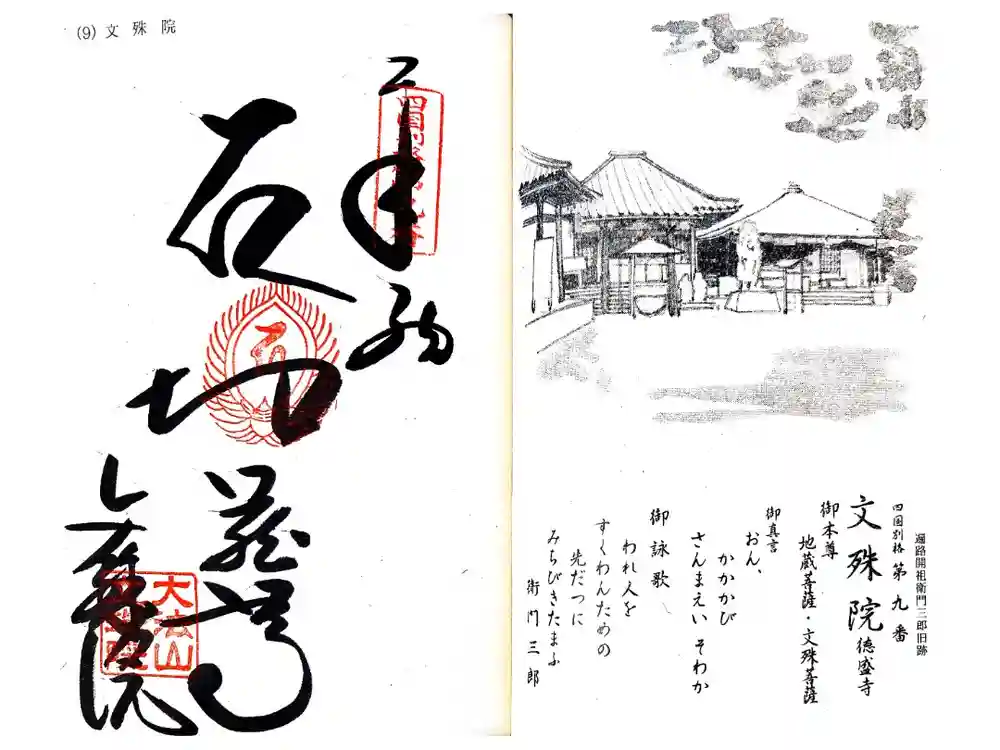 遍路開祖衛門三郎旧跡
四国別格 第九番
文殊院 徳盛寺
御本尊
地蔵菩薩・文殊菩薩
御真言
おん、
かかかび
さんまえい そわか
御詠歌
われ人を
すくわんための
先だつに
みちびきたまふ
衛門三郎
(9) 文殊院
奉納
大法山
文殊院